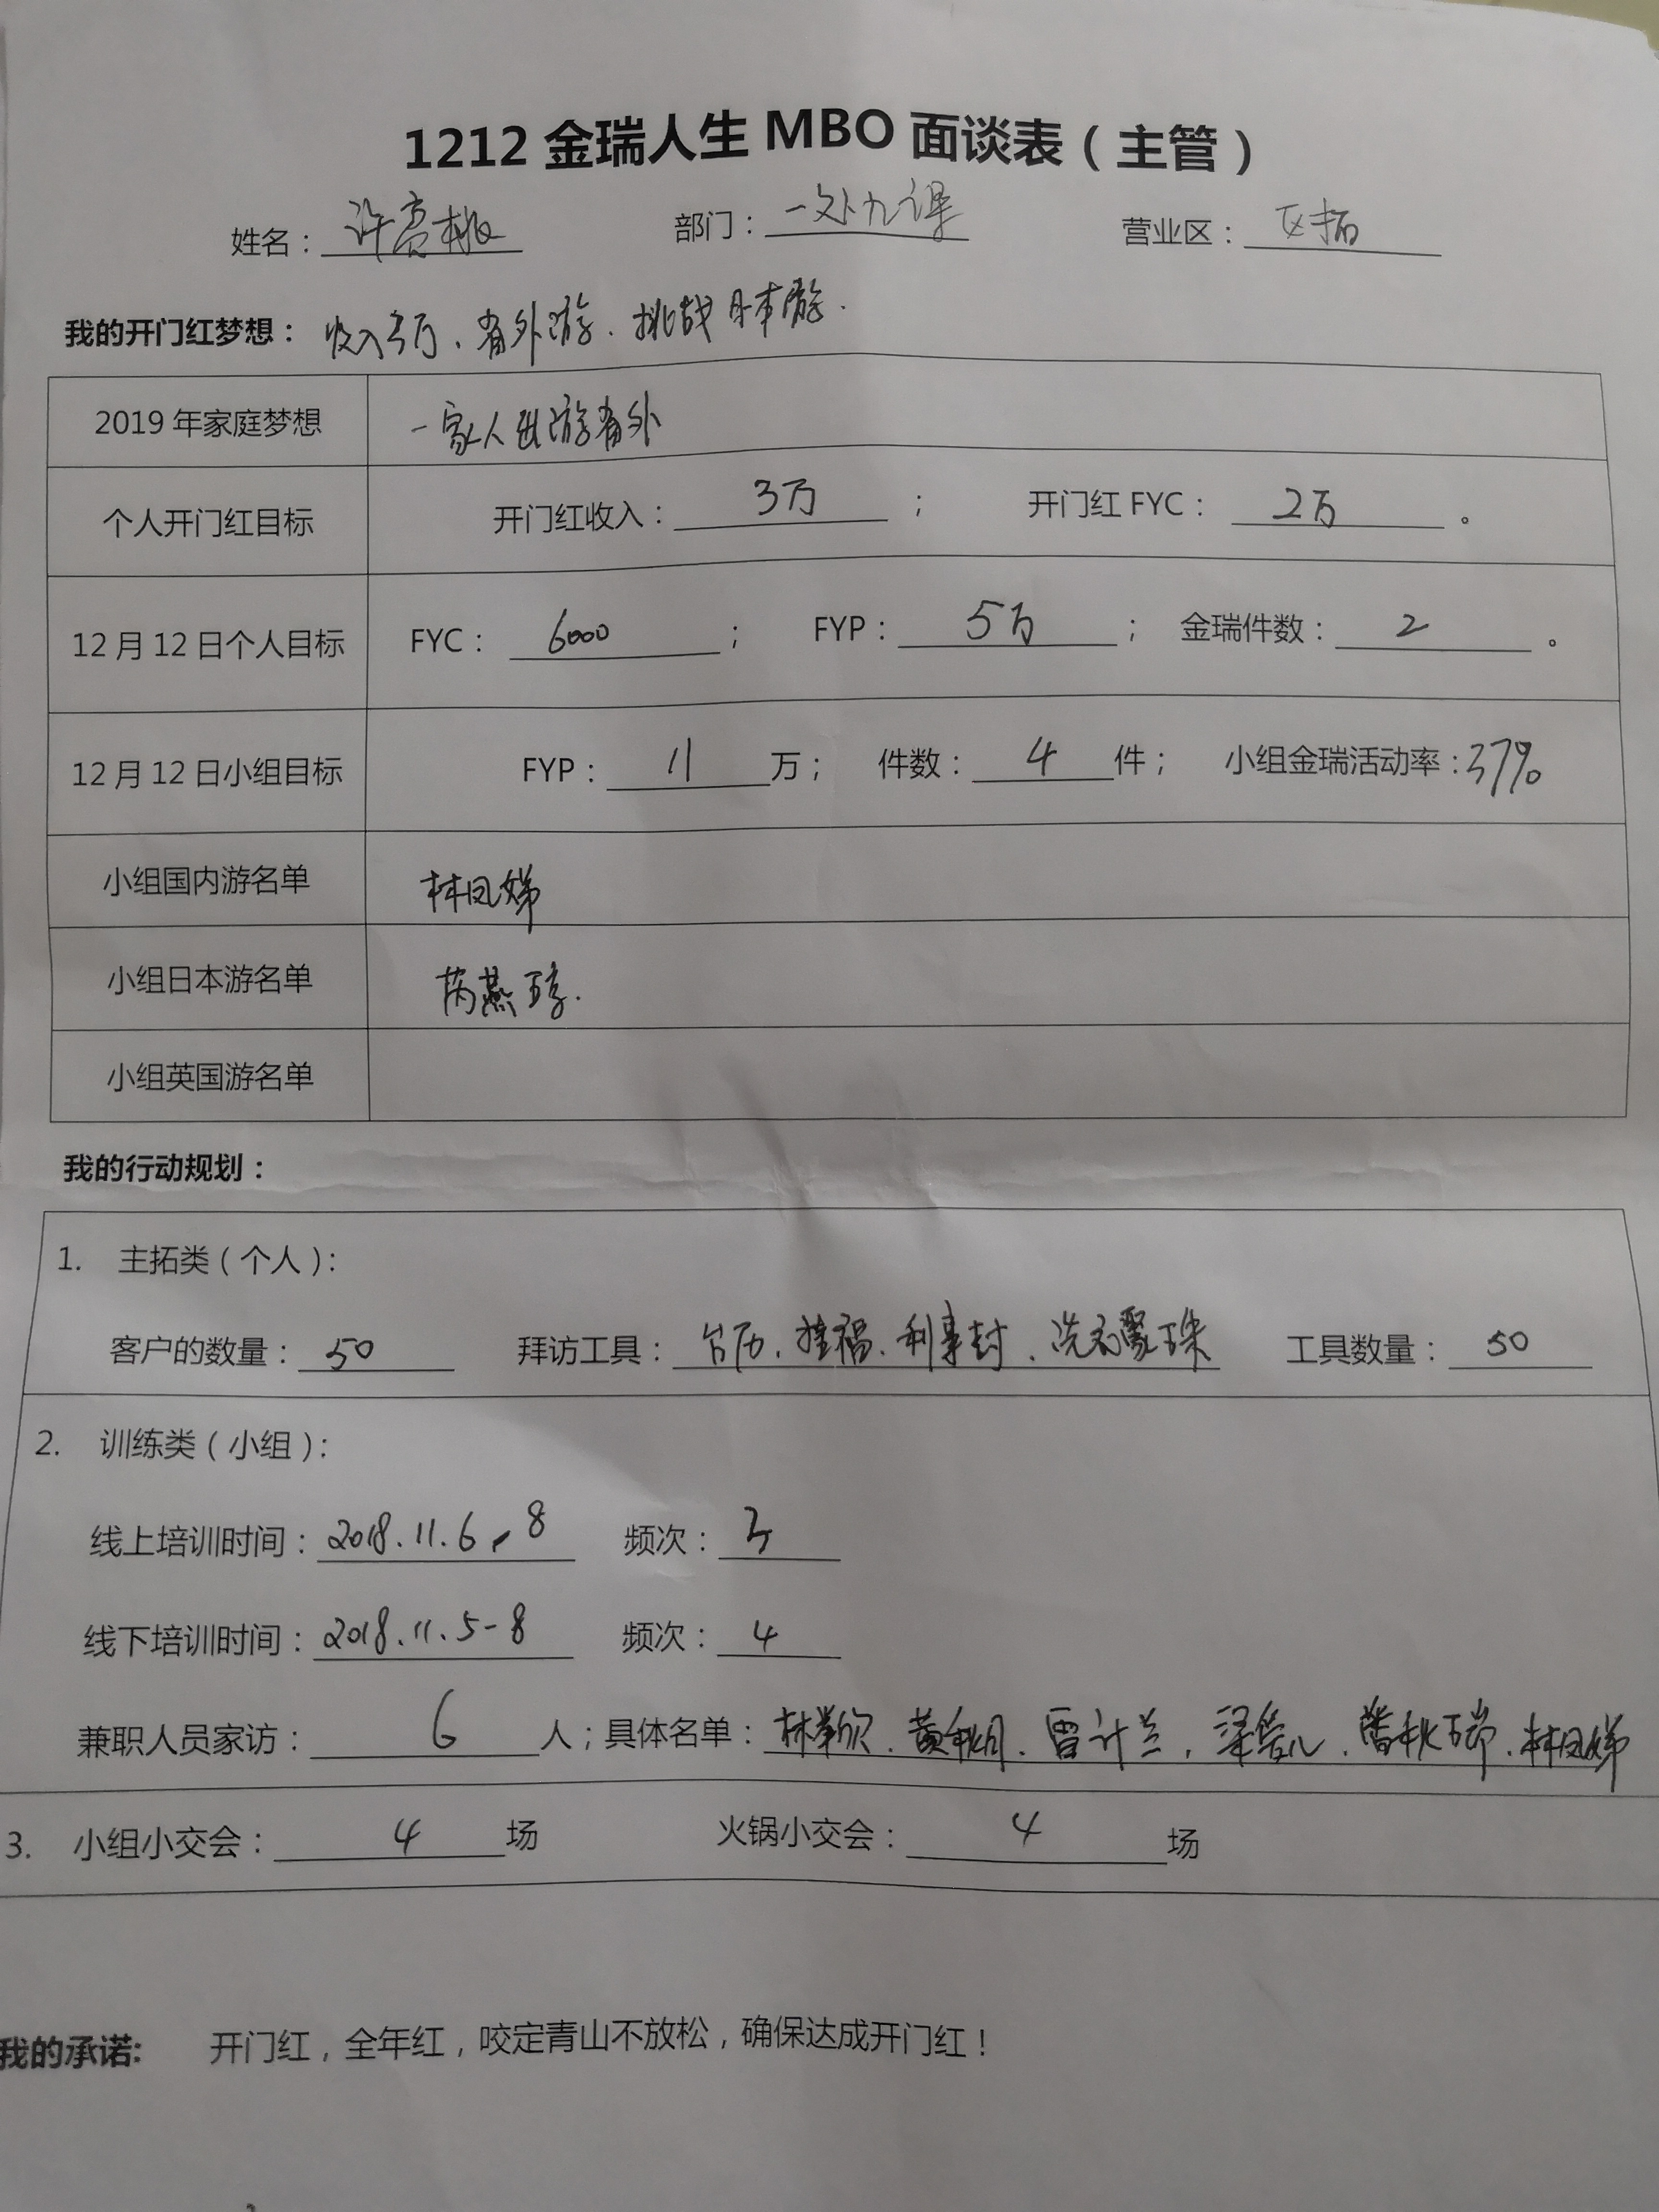 1212 金瑞人生 MBO 面谈表（主管）
姓名：许亮桃 部门：一处九课 营业区：区拓
我的开门红梦想： 收入3万、省外游、挑战日本游.
2019 年家庭梦想 一家人出游省外
个人开门红目标 开门红收入：3万； 开门红 FYC：2万。
12 月 12 日个人目标 FYC：6000； FYP：5万； 金瑞件数：2。
12 月 12 日小组目标 FYP：11万； 件数：4件； 小组金瑞活动率：37%
小组国内游名单 林凤娣
小组日本游名单
小组英国游名单
我的行动规划：
1. 主拓类（个人）：
客户的数量：50 拜访工具：台历、挂福、利事封、洗衣凝珠 工具数量：50
2. 训练类（小组）：
线上培训时间：2018.11.6，8 频次：
线下培训时间：2018.11.5-8 频次：4
兼职人员家访：6人；具体名单： 黄秋月、曾计兰、林凤娣
3. 小组小交会：4场 火锅小交会：4场
我的承诺: 开门红，全年红，咬定青山不放松，确保达成开门红！